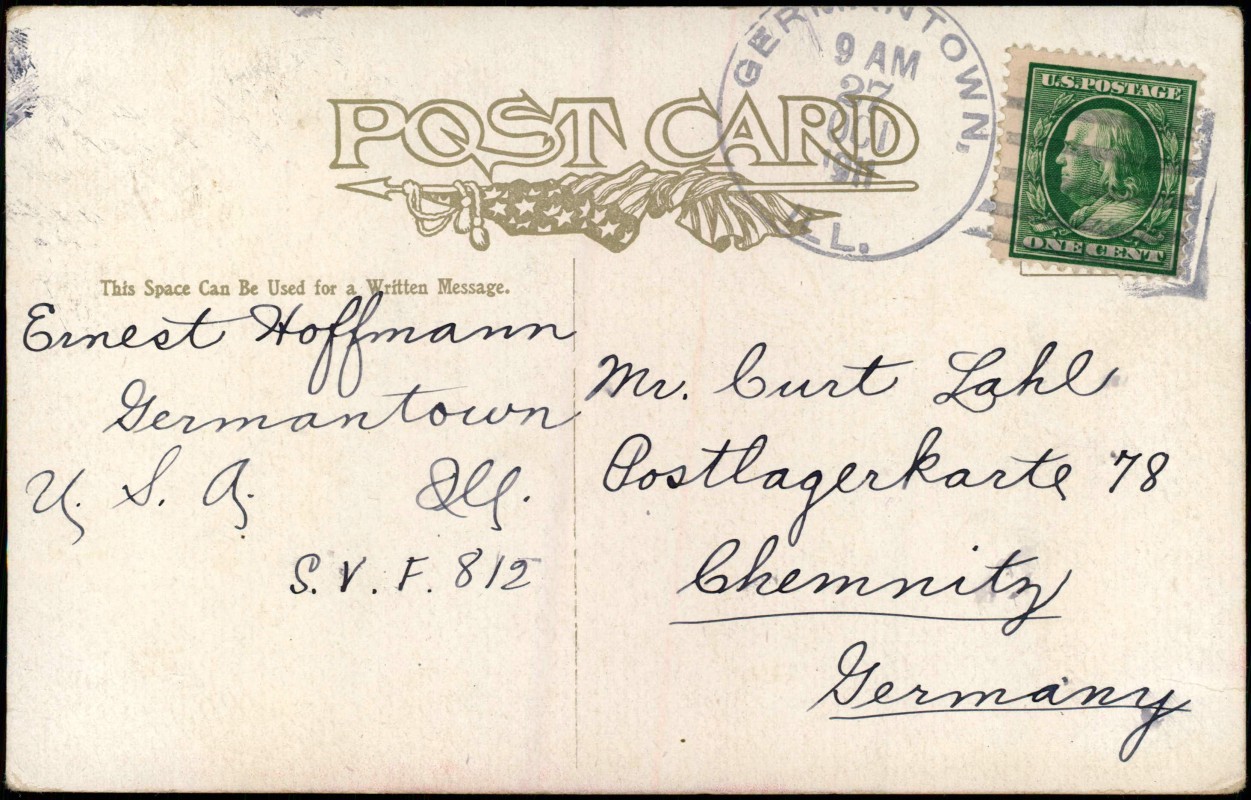 POST CARD
GERMANTOWN,
9 AM
27
OCT
1911
ILL.
U.S. POSTAGE
ONE CENT
This Space Can Be Used for a Written Message.
Ernest Hoffmann
Germantown
U. S. A. Ill.
S. V. F. 812
Mr. Curt Lahl
Postlagerkarte 78
Chemnitz
Germany